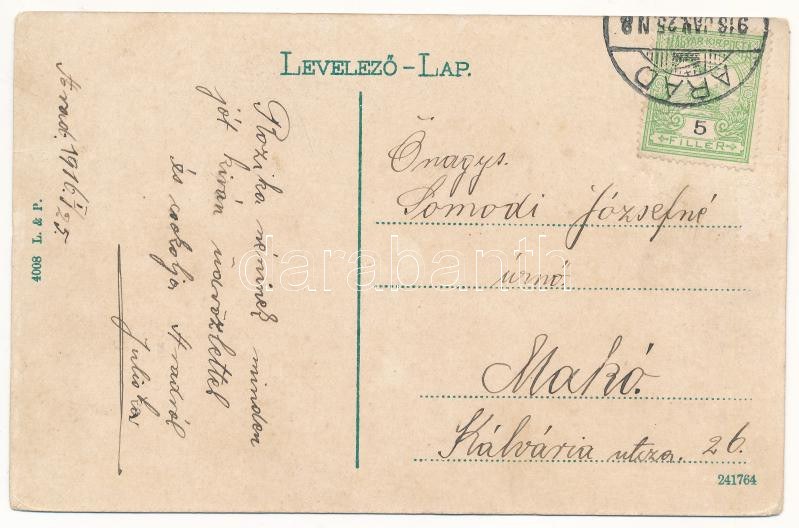 LEVELEZŐ-LAP.
Arad, 1916. I/25.
Rozika néninek minden
jót kíván üdvözlettel
és csókolja Aradról
Juliska
4008 L. & P.
MAGYAR KIR. POSTA
5
FILLÉR
ARAD
916 JAN. 25. N 8
Őnagys.
Somodi Józsefné
úrnő
Makó.
Kálvária utcza. 26.
241764
darabanth